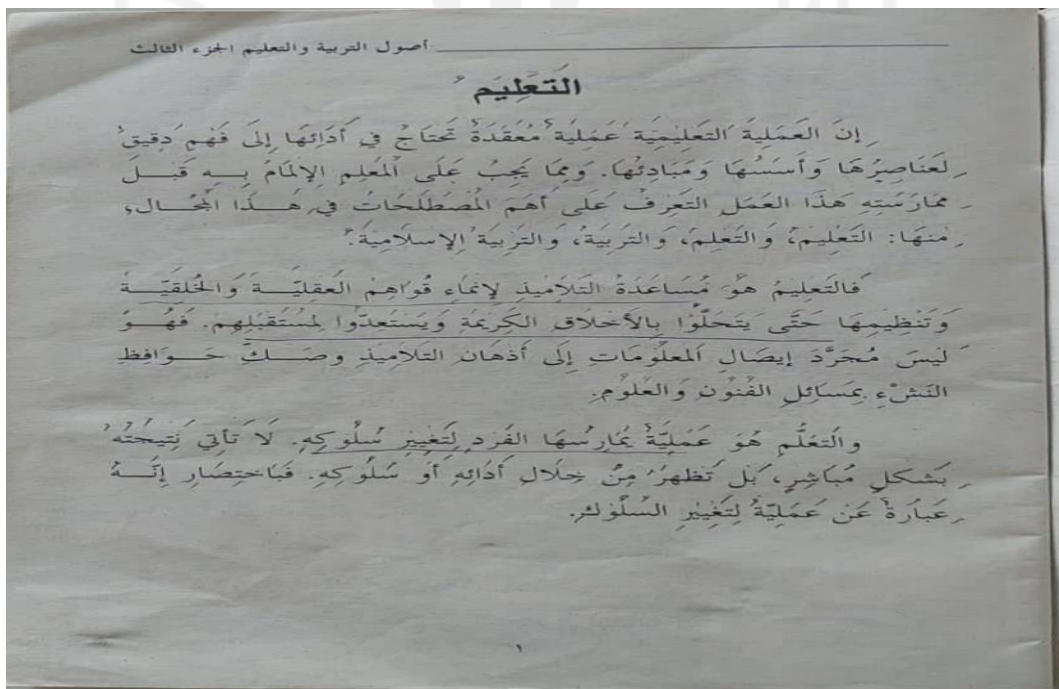 أصول التربية والتعليم الجزء الثالث
التَّعْلِيمُ
إِنَّ العَمَلِيَّةَ التَعْلِيْمِيَّةَ عَمَلِيَّةٌ مُعَقَّدَةٌ تَحْتَاجُ فِي أَدَائِهَا إِلَى فَهْمٍ دَقِيقٍ
لِعَنَاصِرِهَا وَأُسَسِهَا وَمَبَادِئِهَا. وَمِمَّا يَجِبُ عَلَى الْمُعَلِّمِ الإِلْمَامُ بِهِ قَبْلَ
مُمَارَسَتِهِ هَذَا العَمَلَ التَعَرُّفُ عَلَى أَهَمِّ الْمُصْطَلَحَاتِ فِي هَذَا الْمَجَالِ،
مِنْهَا: التَعْلِيْمُ، وَالتَعَلُّمُ، وَالتَرْبِيَةُ، وَالتَرْبِيَةُ الإِسْلَامِيَّةُ.
فَالتَعْلِيمُ هُوَ مُسَاعَدَةُ التَلَامِيذِ لِإِنْمَاءِ قُوَاهِمُ العَقْلِيَّةِ وَالْخُلُقِيَّةِ
وَتَنْظِيمِهَا حَتَّى يَتَحَلَّوْا بِالأَخْلَاقِ الكَرِيمَةِ وَيَسْتَعِدُّوا لِمُسْتَقْبَلِهِمْ. فَهُوَ
لَيْسَ مُجَرَّدَ إِيصَالِ الْمَعْلُومَاتِ إِلَى أَذْهَانِ التَلَامِيذِ وَصَكِّ حَوَافِظِ
النَشْءِ بِمَسَائِلِ الفُنُونِ وَالعُلُوْمِ.
والتَعَلُّم هُوَ عَمَلِيَّةٌ يُمَارِسُهَا الفَرْدُ لِتَغْيِيْرِ سُلُوكِهِ. لَا تَأْتِي نَتِيجَتُهُ
بِشَكْلٍ مُبَاشِرٍ، بَلْ تَظْهَرُ مِنْ خِلَالِ أَدَائِهِ أَوْ سُلُوكِهِ. فَبِاخْتِصَارٍ إِنَّهُ
عِبَارَةٌ عَنْ عَمَلِيَّةٍ لِتَغْيِيْرِ السُلُوْكِ.
١